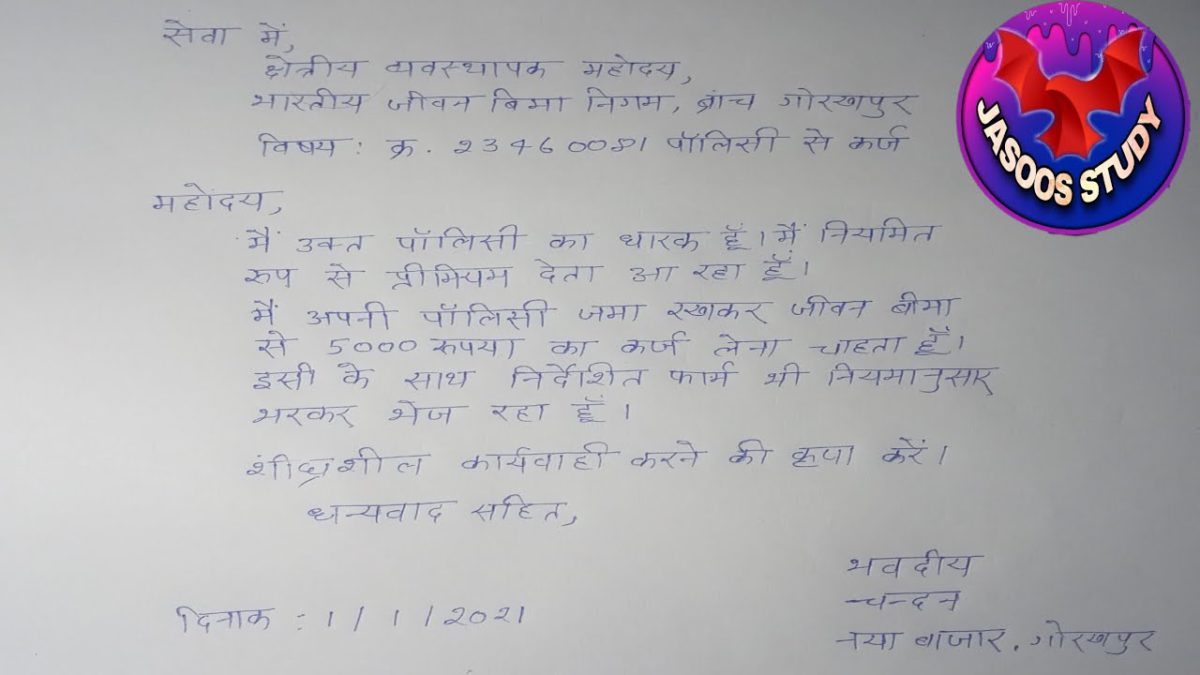 सेवा में,
क्षेत्रीय व्यवस्थापक महोदय,
भारतीय जीवन बिमा निगम, ब्रांच गोरखपुर
विषय : क्र. 23460081 पॉलिसी से कर्ज
JASOOS STUDY
महोदय,
मैं उक्त पॉलिसी का धारक हूँ। मैं नियमित
रुप से प्रीमियम देता आ रहा हूँ।
मैं अपनी पॉलिसी जमा रखकर जीवन बीमा
से 5000 रुपया का कर्ज लेना चाहता हूँ।
इसी के साथ निर्देशित फार्म भी नियमानुसार
भरकर भेज रहा हूँ।
शीघ्रशील कार्यवाही करने की कृपा करें।
धन्यवाद सहित,
भवदीय
चन्दन
नया बाजार, गोरखपुर
दिनाक : 1/1/2021